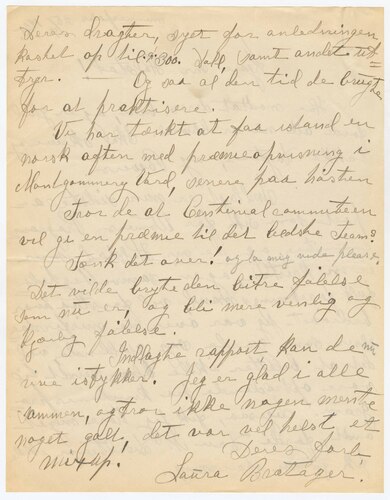 Deres dragter, syet for anledningen
kostet op til $300. Dall, samt andet ut-
styr. — Og saa al den tid de brugte
for at praktisere.
Vi har tænkt at faa istand en
norsk aften med præmieopvisning i
Montgommery Ward, senere paa høsten
Tror de at Centenial committeen
vil gi en præmie til det bedste Team?
Tænk det over! og la meg vide please.
Det vilde bryte den bitre følelse
som nu er, og bli mere venlig og
følelse.
Indlagte rapport, kan de nu
rive istykker. Jeg er glad i alle
sammen, og tror ikke nogen mente
noget galt, det var vel helst et
mixup!
Deres forb.
Laura Bratager.